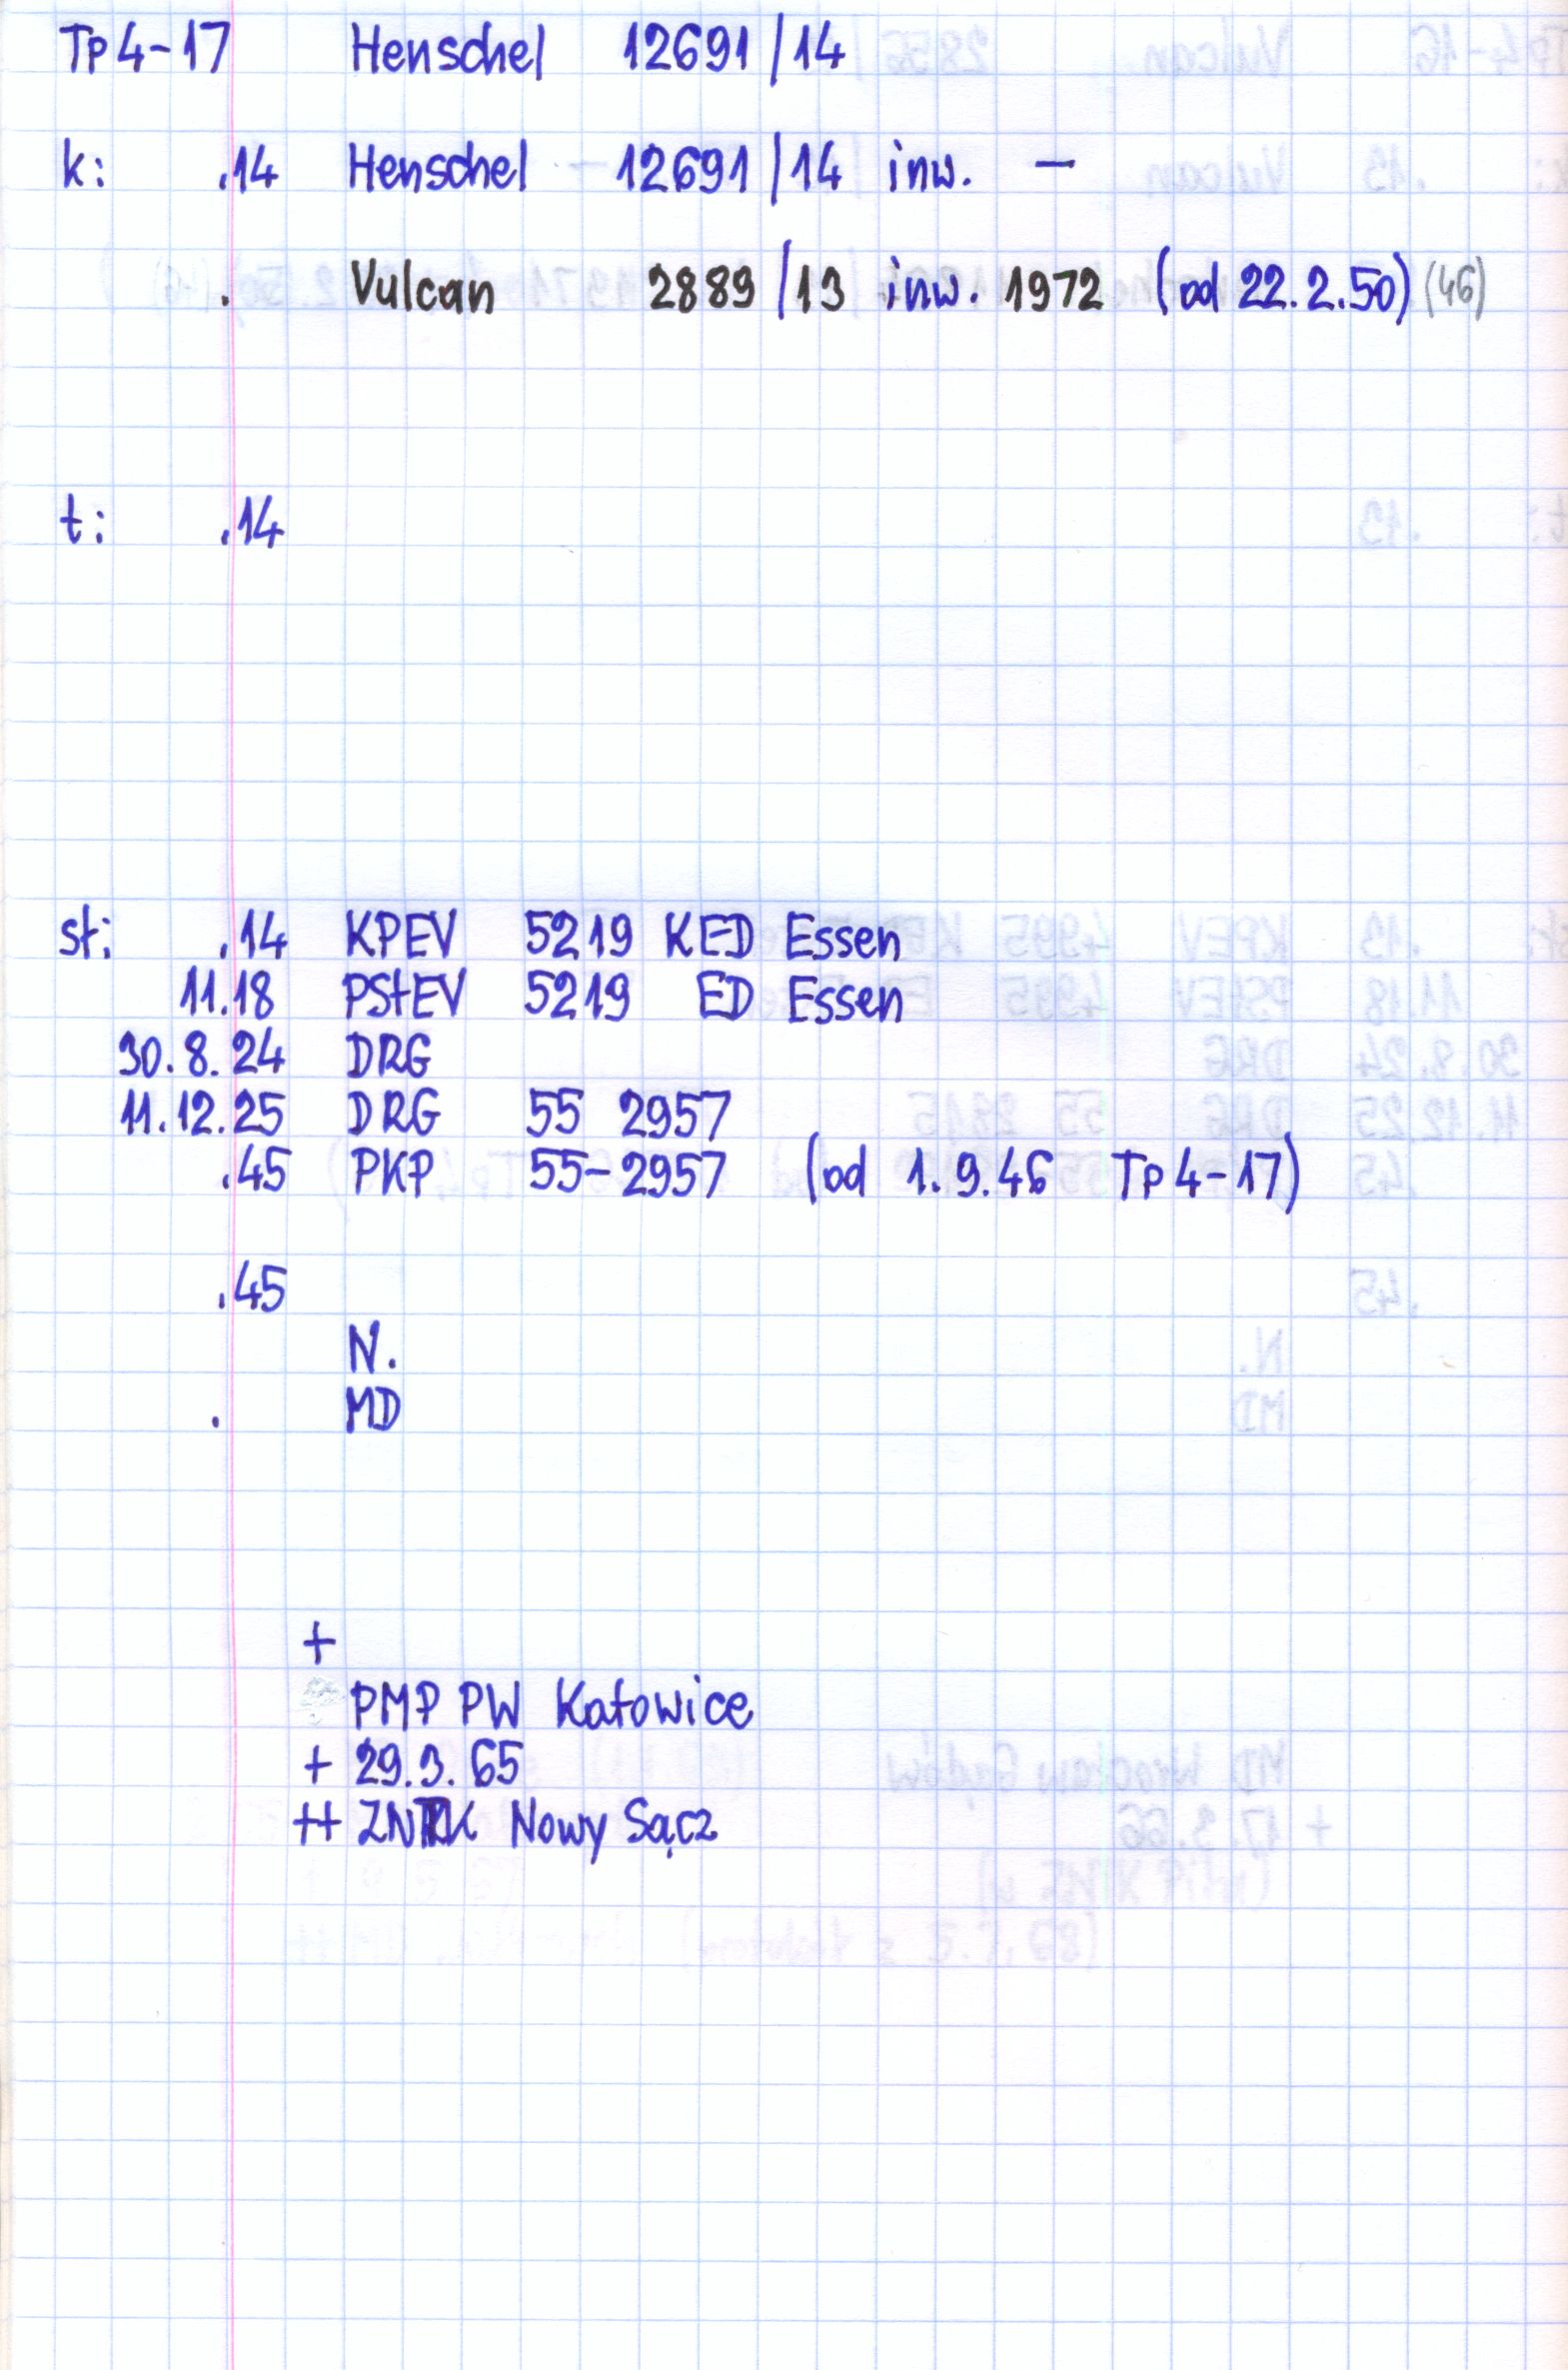 Tp4-17 Henschel 12691/14
k: .14 Henschel 12691/14 inw. —
. Vulcan 2889/13 inw. 1972 (od 22.2.50) (46)
t: .14
st: .14 KPEV 5219 KED Essen
11.18 PStEV 5219 ED Essen
30.8.24 DRG
11.12.25 DRG 55 2957
.45 PKP 55-2957 (od 1.9.46 Tp4-17)
.45
N.
. MD
+
PMP PW Katowice
+ 29.3.65
++ ZNTK Nowy Sącz